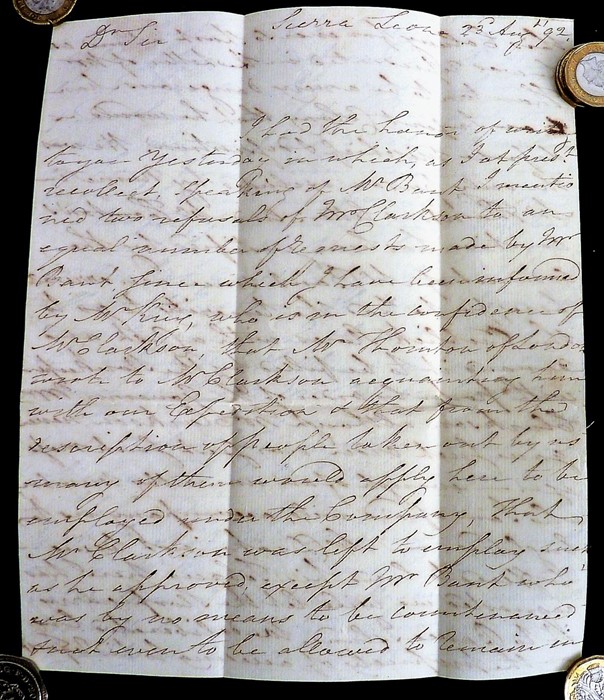 Sierra Leone 23d Augt 92
Dr Sir
I had the honor of
to you Yesterday in which, as I at prest
recollect, Speaking of Mr Bant I mentio
ned two refusals of Mr Clarkson to an
equal number of requests made by Mr
Bant since which I have been informed
by Mr King, who is in the confidence of
Mr Clarkson, that Mr Thornton of London
wrote to Mr Clarkson acquainting him
with our Expedition & that from the
description of people taken out by us
many of them would apply here to be
employed under the Company, that
Mr Clarkson was left to employ such
as he approved, except Mr Bant who
was by no means to be countenanced
nor even to be allowed to remain in